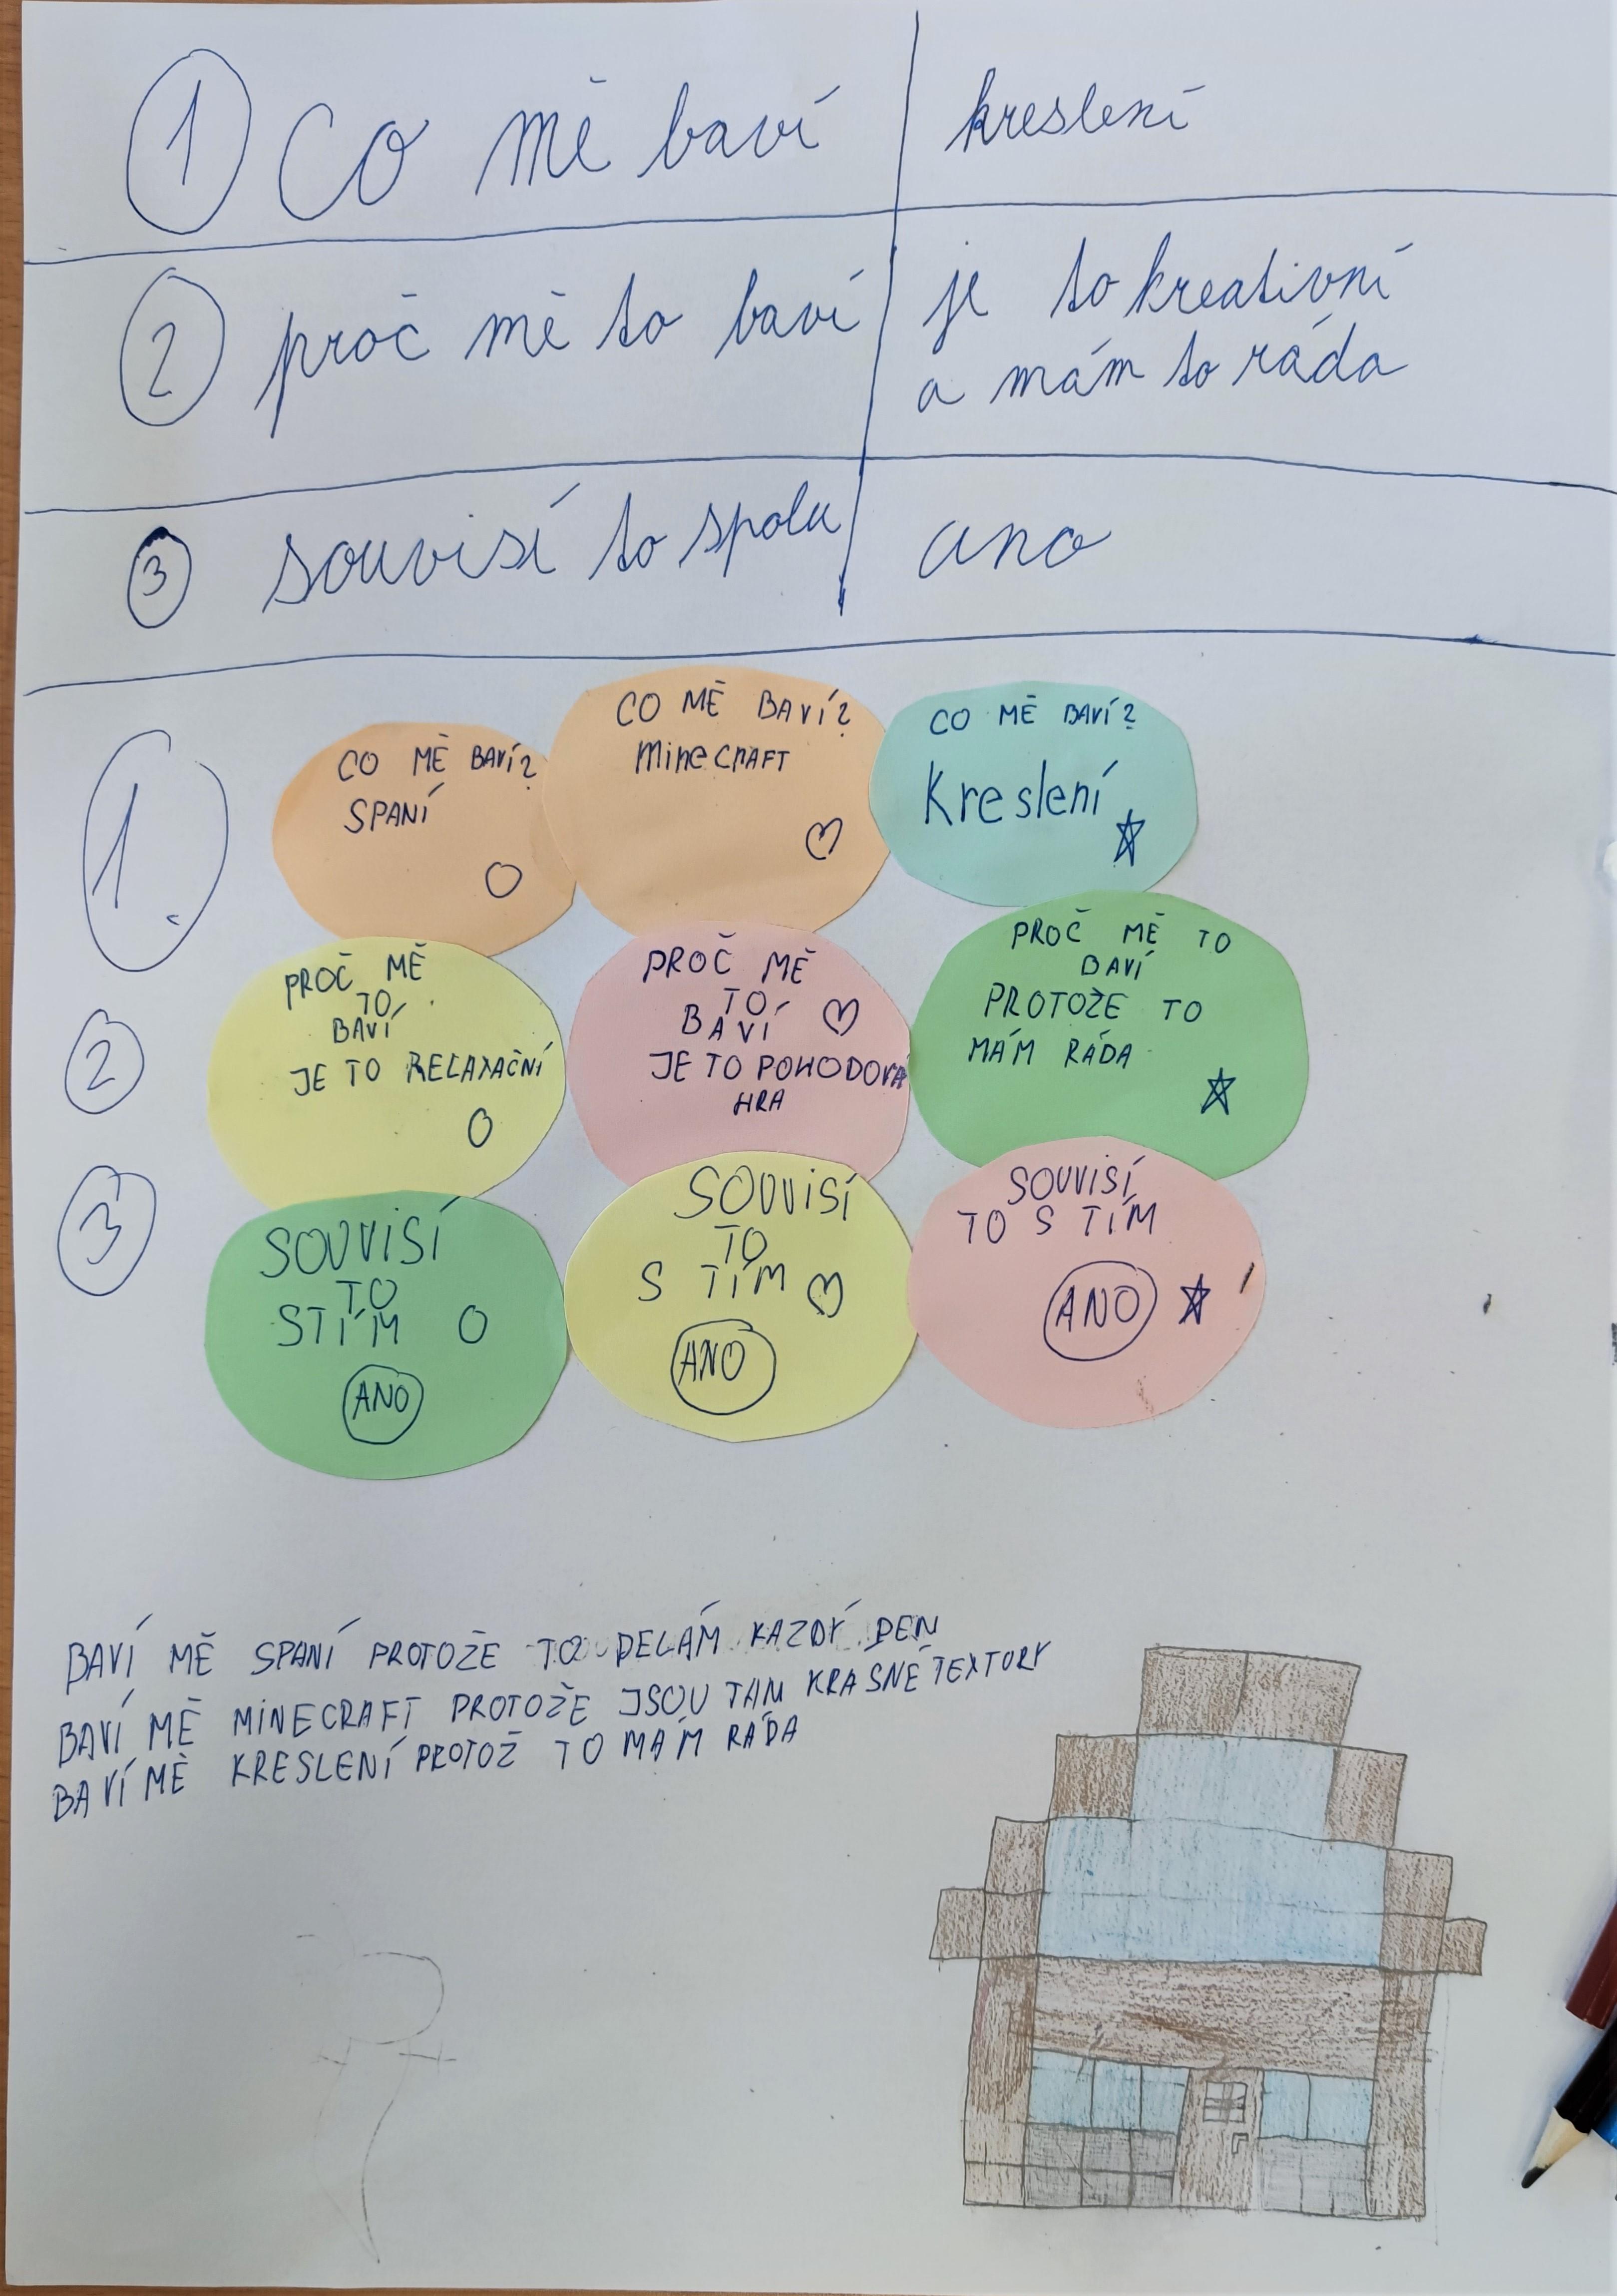 1 Co mě baví kreslení
2 proč mě to baví je to kreativní
a mám to ráda
3 souvisí to spolu ano
1.
CO MĚ BAVÍ?
SPANÍ
CO MĚ BAVÍ?
MineCRAFT
CO MĚ BAVÍ?
Kreslení
2
PROČ MĚ
TO
BAVÍ
JE TO RELAXAČNÍ
PROČ MĚ
TO
BAVÍ
JE TO POHODOVÁ
HRA
PROČ MĚ TO
BAVÍ
PROTOŽE TO
MÁM RÁDA
3
SOUViSÍ
TO
STÍM
ANO
SOUViSÍ
TO
S TÍM
ANO
SOUViSÍ
TO S TÍM
ANO
BAVÍ MĚ SPANÍ PROTOŽE TO DELÁM KAZDÝ DEN
BAVÍ MĚ MiNECRAFT PROTOŽE JSOU TAM KRÁSNÉ TEXTURY
BAVÍ MĚ KRESLENÍ PROTOŽ TO MÁM RÁDA